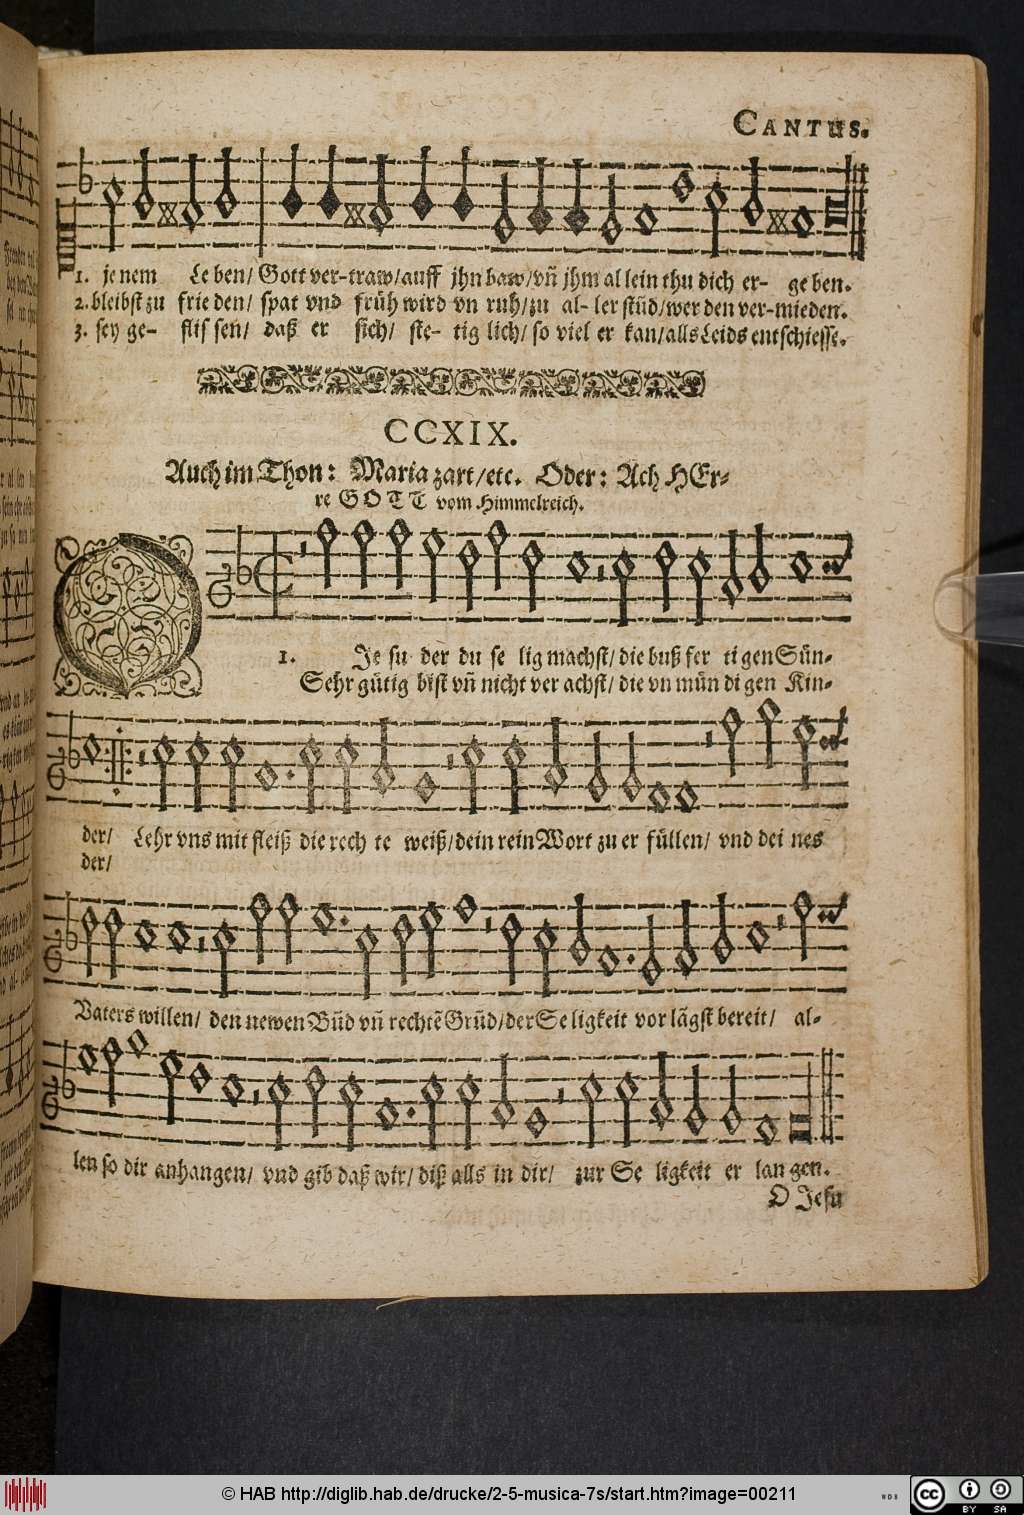 CANTUS.
1. je nem Le ben/ Gott ver-traw/auff jhn baw/vñ jhm al lein thu dich er- ge ben.
2. bleibst zu frie den/ spat vnd früh wird vn ruh/zu al- ler stüd/wer den ver-mieden.
3. sey ge- flis sen/ daß er sich/ ste- tig lich/ so viel er kan/alls Leids entschiesse.
CCXIX.
Auch im Thon: Maria zart/etc. Oder: Ach HEr-
re GOTT vom Himmelreich.
O
1. Je su der du se lig machst/ die buß fer ti gen Sün-
Sehr gütig bist vñ nicht ver achst/ die vn mün di gen Kin-
der/ Lehr vns mit fleiß die rech te weiß/dein rein Wort zu er füllen/ vnd dei nes
der/
Vaters willen/ den newen Bũd vñ rechtẽ Grũd/der Se ligkeit vor lãgst bereit/ al-
len so dir anhangen/ vnd gib daß wir/ diß alls in dir/ zur Se ligkeit er lan gen.
O Jesu
© HAB http://diglib.hab.de/drucke/2-5-musica-7s/start.htm?image=00211
WDB
cc BY SA